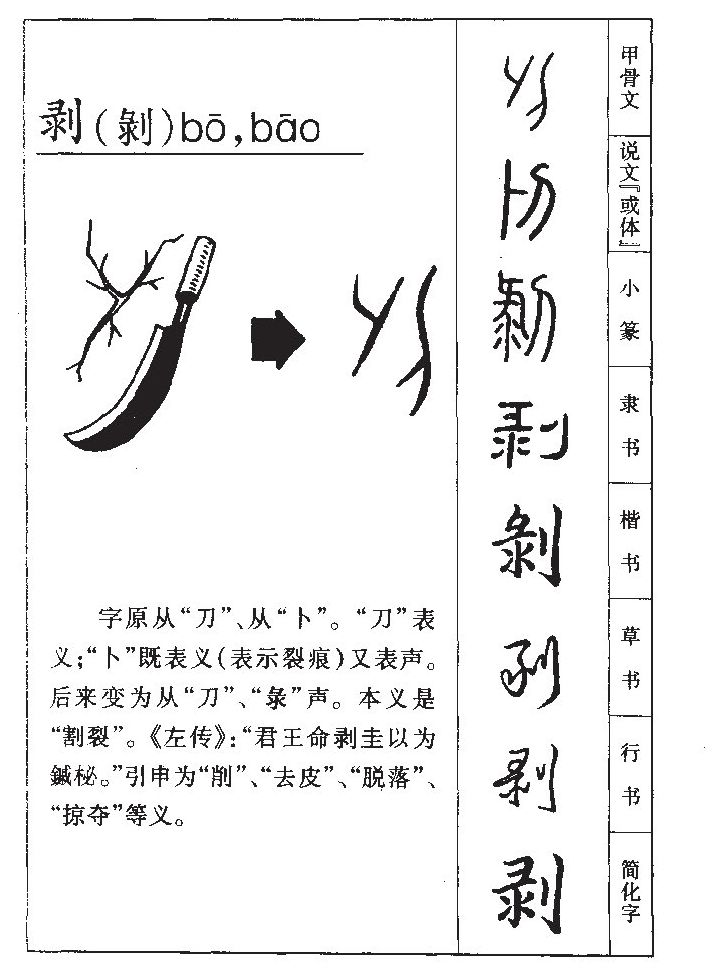 剥(剝)bō,bāo
字原从“刀”、从“卜”。“刀”表
义;“卜”既表义(表示裂痕)又表声。
后来变为从“刀”、“彔”声。本义是
“割裂”。《左传》:“君王命剥圭以为
鏚柲。”引申为“削”、“去皮”、“脱落”、
“掠夺”等义。
甲骨文
说文『或体』
小篆
隶书
剥
楷书
剝
草书
剥
行书
剥
简化字
剥